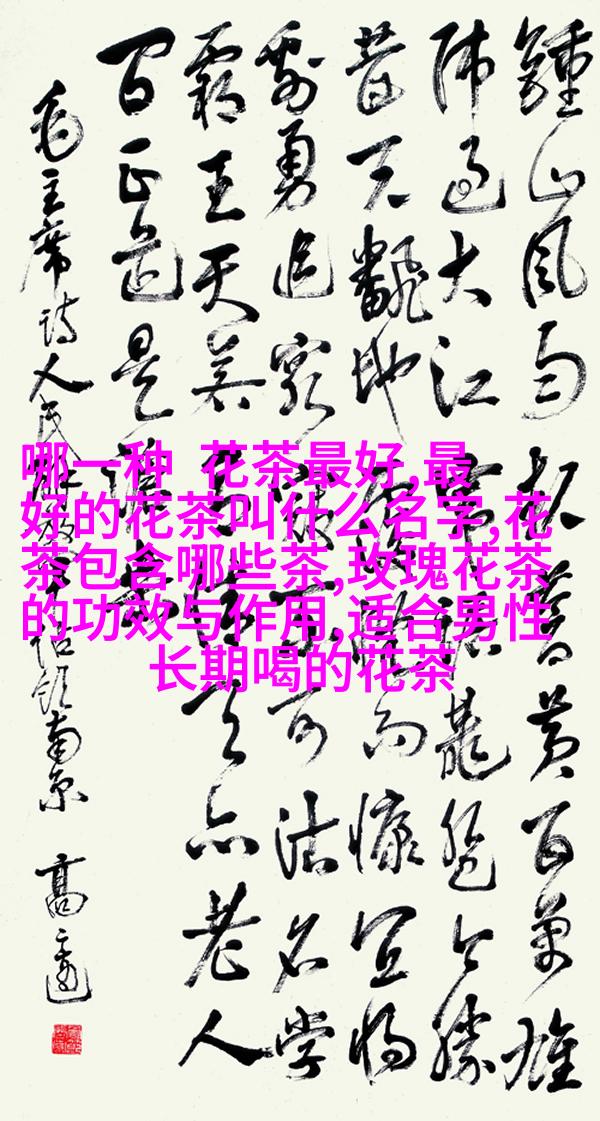 鍾山風雨起蒼黃百萬雄
師過大江虎踞龍盤今勝
昔天翻地覆慨而慷宜將
剩勇追窮寇不可沽名學
霸王天若有情天亦老人
间正道是滄桑
毛主席诗人民解放军佔领南京
高
哪一种 花茶最好,最
好的花茶叫什么名字,花
茶包含哪些茶,玫瑰花茶
的功效与作用,适合男性
长期喝的花茶